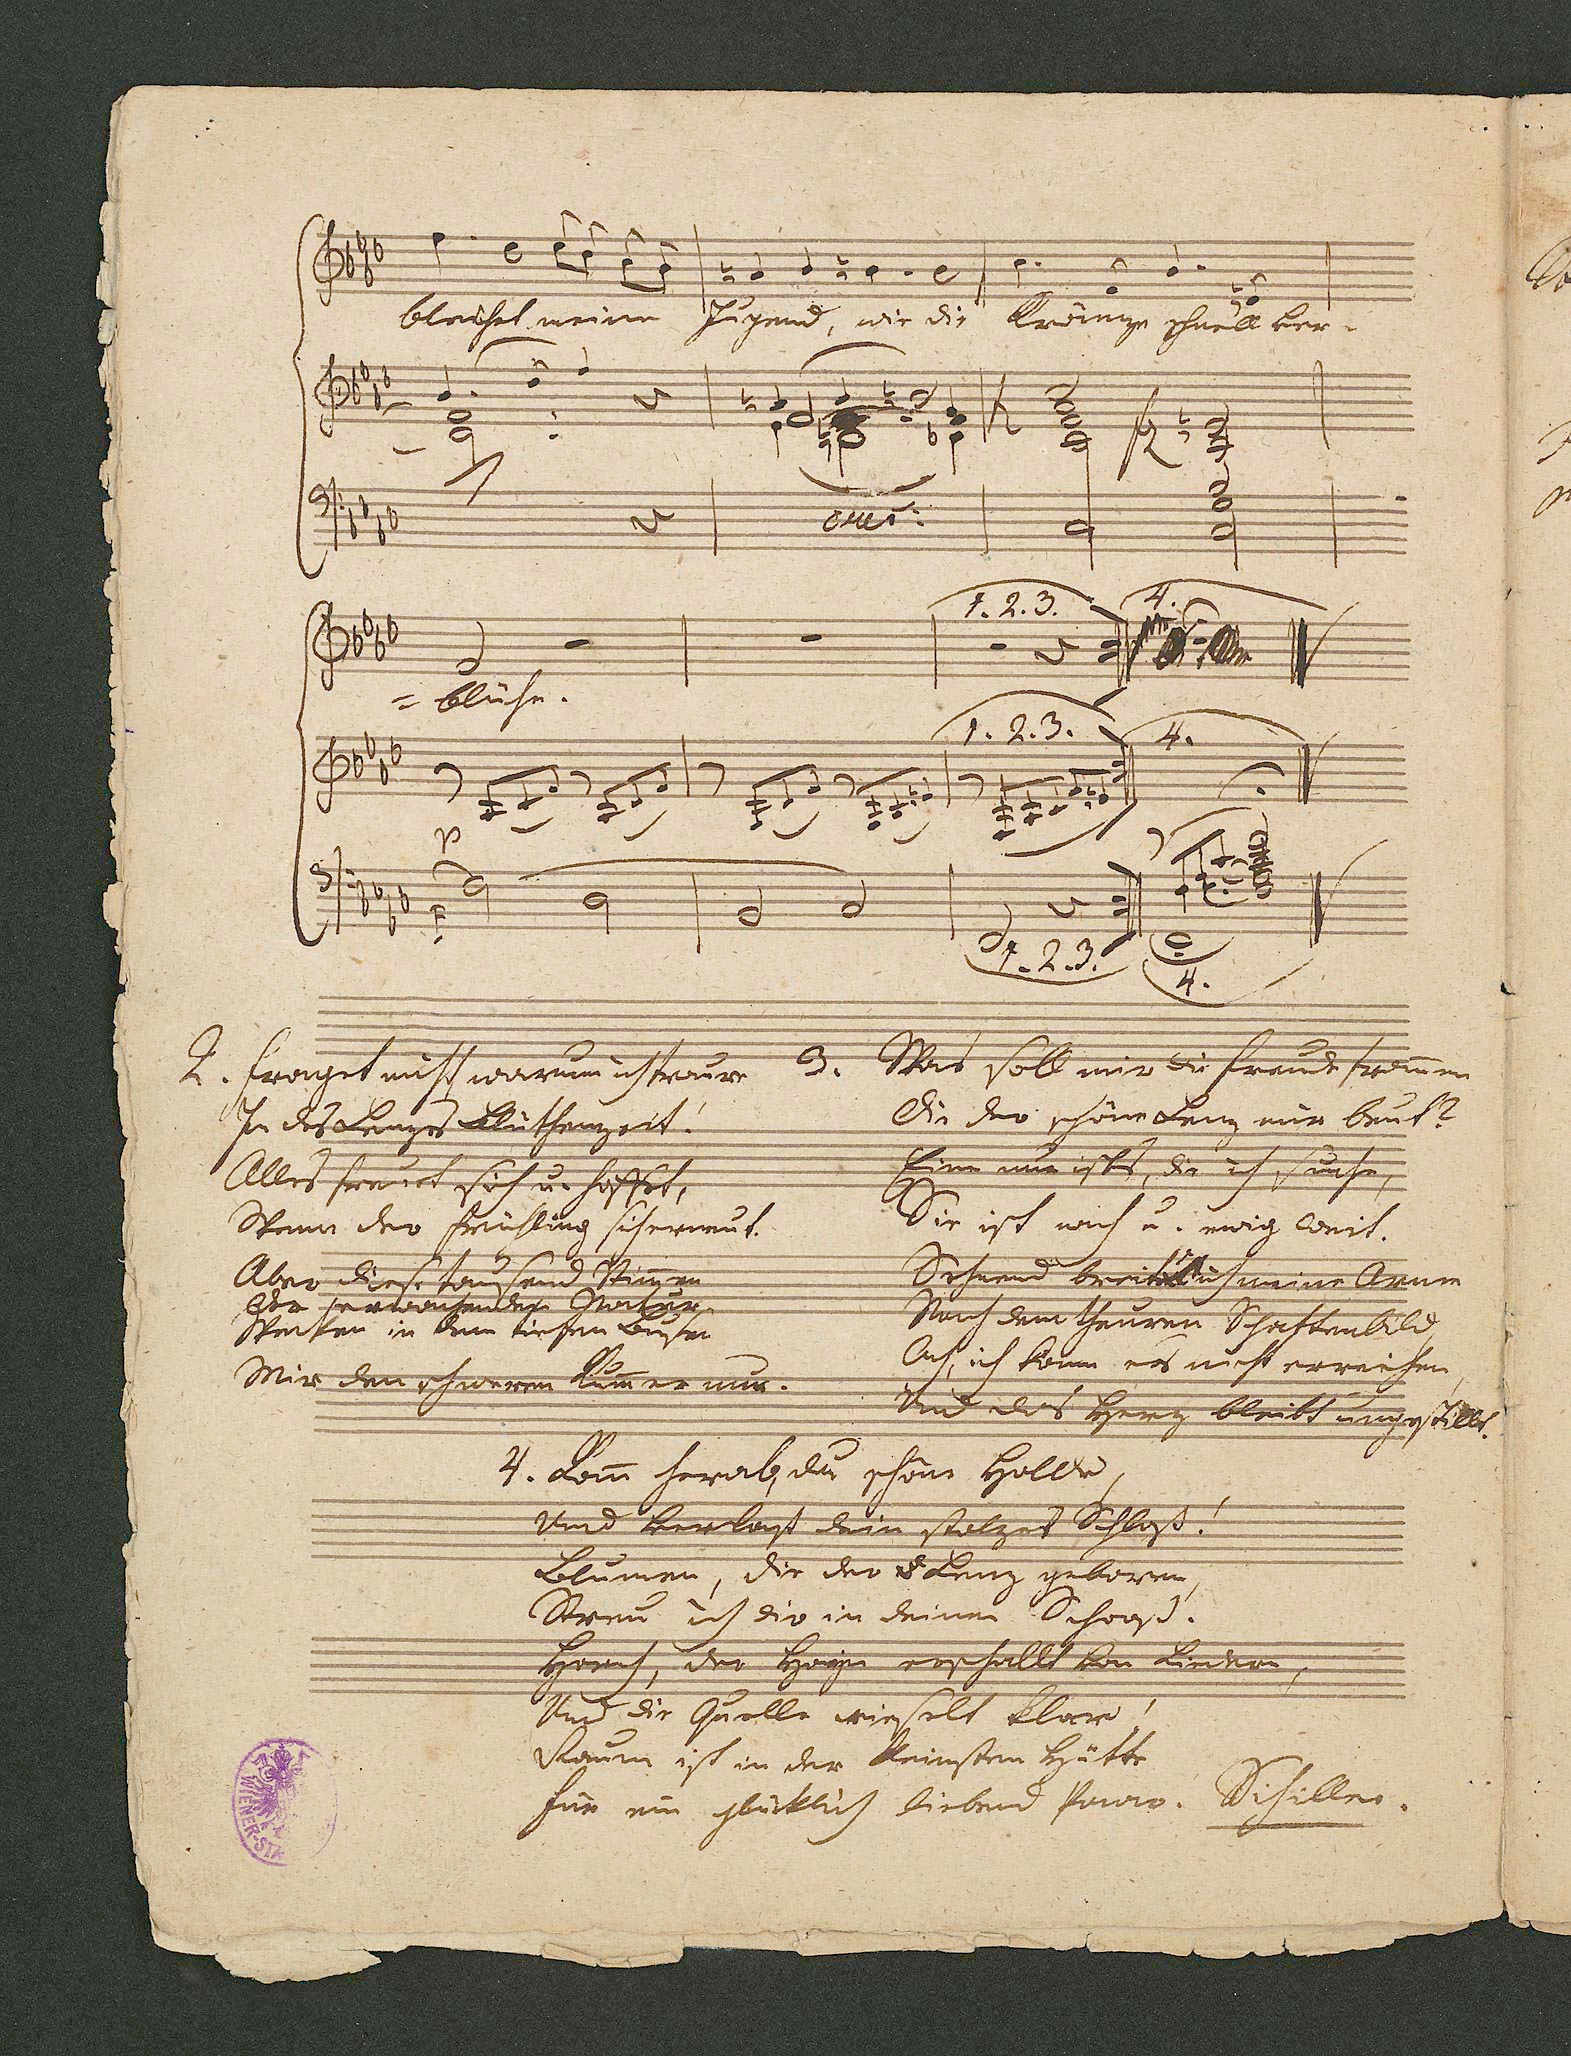 bleichet meine Jugend, wie die Kränze schnell ver-
1. 2. 3. 4.
= blühn.
1. 2. 3. 4.
p
1. 2. 3.
4.
2. Fraget nicht warum ich traure
In des Lenzes Blüthenzeit!
Alles freuet sich u. hoffet,
Wenn der Frühling sich erneut.
Aber diese tausend Stim̅en
Der erwachenden Natur
Wecken in dem tiefen Busen
Mir den schweren Kum̅er nur.
3. Was soll mir die Freude from̅en
Die der schöne Lenz mir beut?
Eine nur ists, die ich suche,
Sie ist nach u. ewig weit.
Sehnend breit ich meine Arme
Nach dem theuren Schattenbild,
Ach, ich kann es nicht erreichen,
Und das Herz bleibt ungestillt.
4. Kom̅ herab, du schöne Holde,
Und verlaß dein stolzes Schloß!
Blumen, die der Lenz geboren,
Streu ich dir in deinen Schooß.
Horch, der Hayn erschallt von Liedern,
Und die Quelle rieselt klar!
Raum ist in der kleinsten Hütte
Für ein glücklich liebend Paar. Schiller.
WIENER-STA